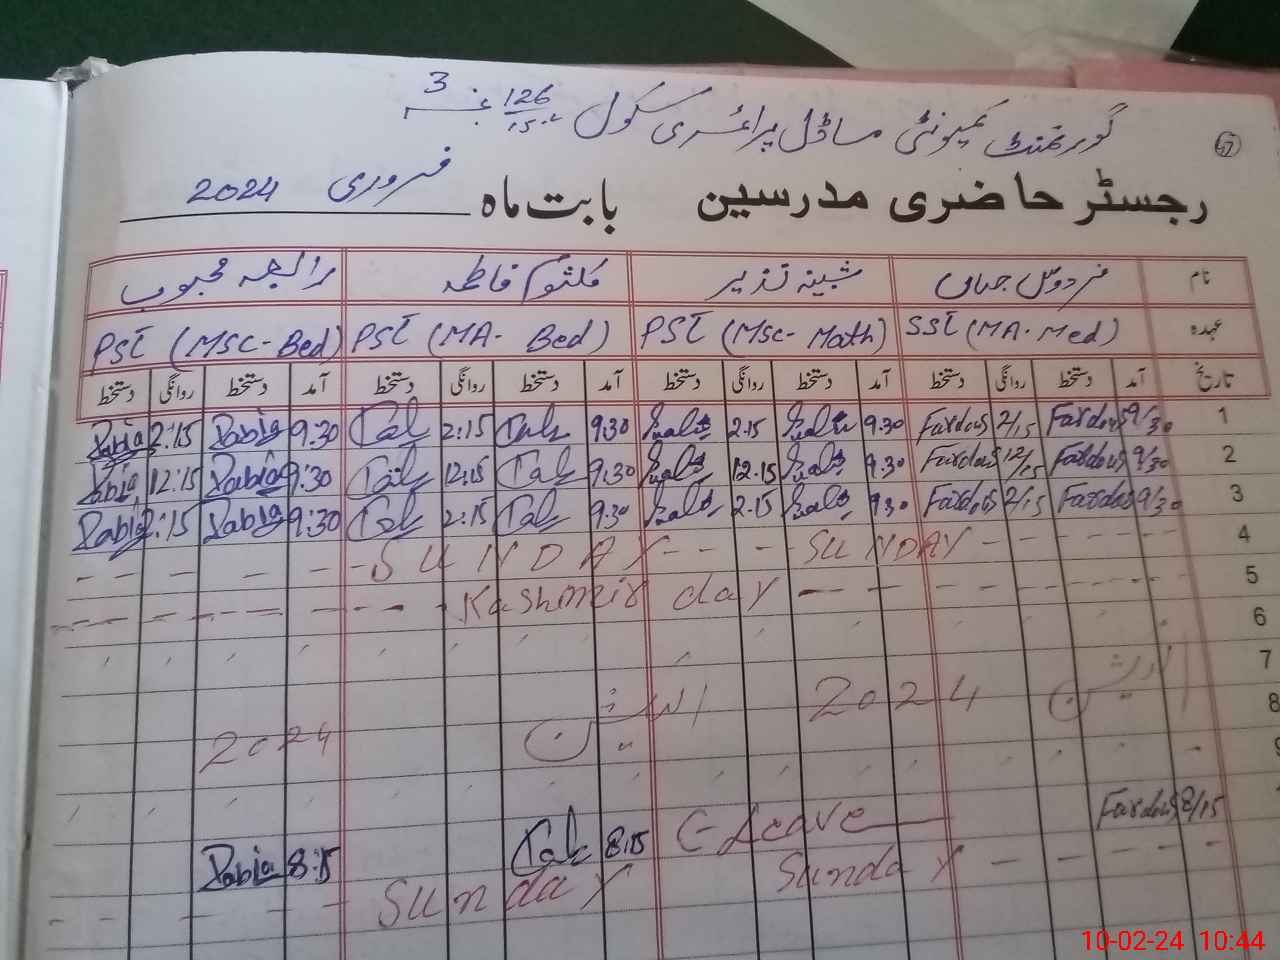 گورنمنٹ کمیونٹی ماڈل پرائمری سکول 126/15.L نمبر 3
47
رجسٹر حاضری مدرسین بابت ماہ فروری 2024
نام فردوس جہاں شبینہ نذیر کلثوم فاطمہ رابعہ محبوب
عہدہ SST (MA-Med) PST (Msc-Math) PST (MA-Bed) PST (MSc-Bed)
تاریخ آمد دستخط روانگی دستخط آمد دستخط روانگی دستخط آمد دستخط روانگی دستخط آمد دستخط روانگی دستخط
1 9/30 Fardous 2/15 Fardous 9.30 2.15 9.30 2:15 9:30 Rabia 2:15 Rabia
2 9/30 Fardous 12/15 Fardous 9.30 12.15 9.30 12:15 9:30 Rabia 12:15 Rabia
3 9/30 Fardous 2/15 Fardous 9.30 2.15 9.30 2:15 9:30 Rabia 2:15 Rabia
4 SUNDAY SUNDAY
5 Kashmir day
6
7
8 الیکشن 2024 الیکشن 2024
9
8/15 Fardous C-Leave 8:15 8:15 Rabia
Sunday Sunday
10-02-24 10:44